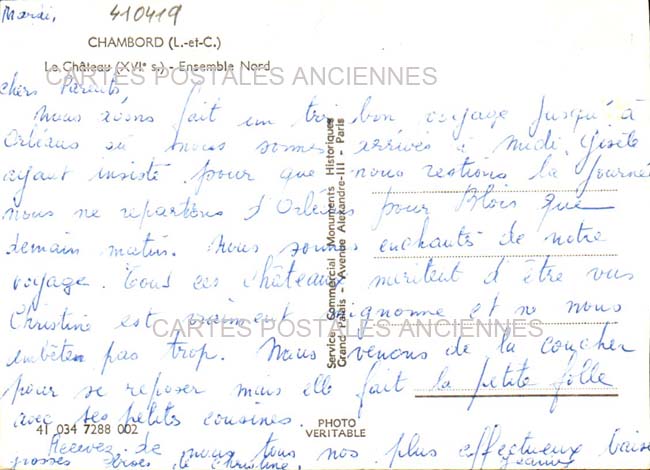 Mardi,
410419
CHAMBORD (L.-et-C.)
Le Château (XVIe s.) - Ensemble Nord
CARTES POSTALES ANCIENNES
Chers Parents
Nous avons fait un très bon voyage jusqu'à
Orléans où nous sommes arrivés à midi. Gisèle
ayant insisté pour que nous restions la journée
nous ne repartons d'Orléans pour Blois que
demain matin. Nous sommes enchantés de notre
voyage. Tous ces châteaux méritent d'être vus
Christine est vraiment mignonne et ne nous
CARTES POSTALES ANCIENNES
embête pas trop. Nous venons de la coucher
pour se reposer mais elle fait la petite folle
avec ses petites cousines.
41 034 7288 002
PHOTO
VERITABLE
Recevez de nous tous nos plus affectueux baisers
grosses bises de Christine.
Service Commercial Monuments Historiques
Grand-Palais - Avenue Alexandre-III - Paris